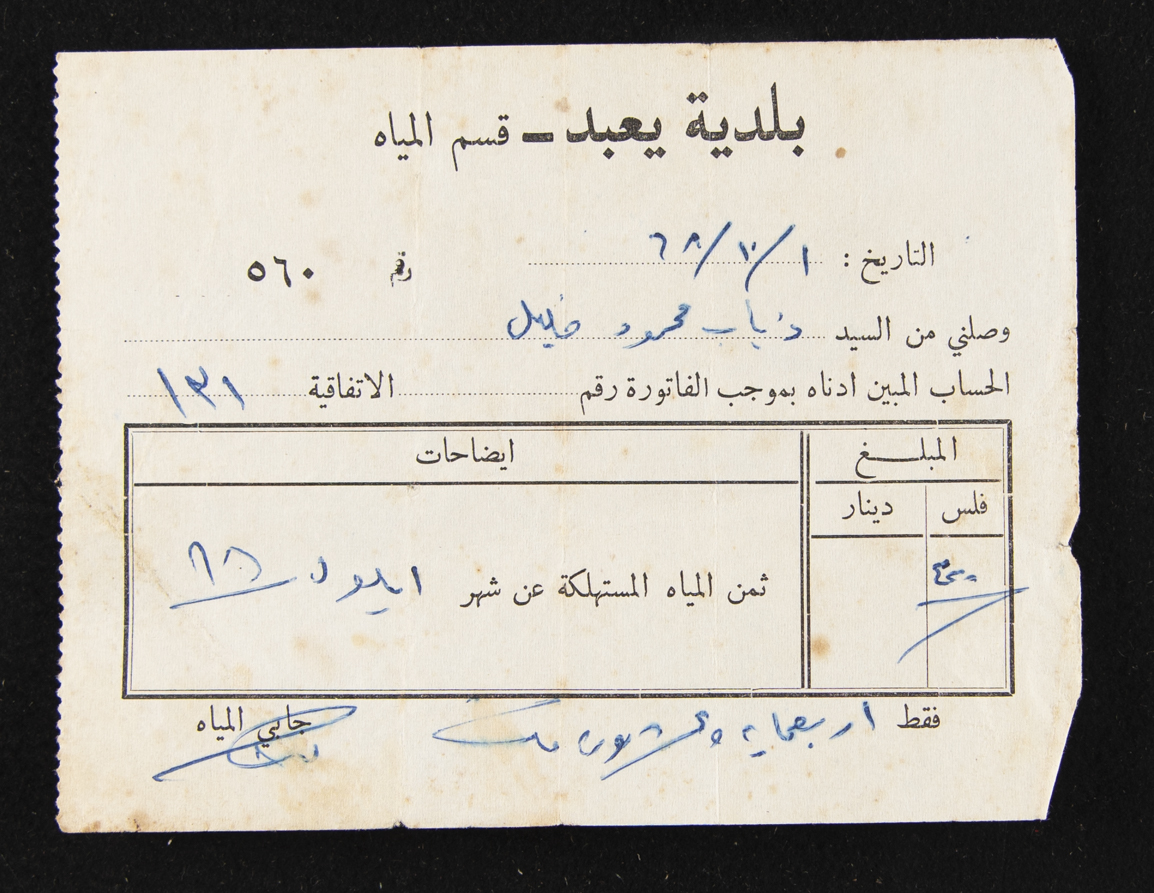 بلدية يعبد ـ قسم المياه
التاريخ : ١/١٠/٦٨
رقم ٥٦٠
وصلني من السيد ذياب محمود خليل
الحساب المبين ادناه بموجب الفاتورة رقم الاتفاقية ١٣١
المبلغ ايضاحات
فلس دينار
ثمن المياه المستهلكة عن شهر ايلول ٦٨
فقط اربعماية وعشرون فلس
جابي المياه